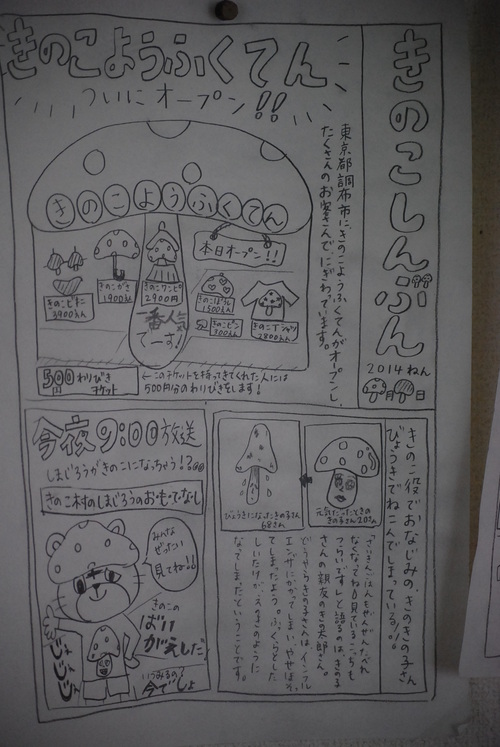 きのこしんぶん
2014ねん
月 日
きのこようふくてん
ついにオープン!!
東京都調布市にきのこようふくてんがオープンし、
たくさんのお客さんでにぎわっています。
きのこようふくてん
本日オープン!!
きのこビキニ
3900えん
きのこかさ
1900えん
きのこワンピ
2900円
一番人気
でーす!
きのこぼうし
1500えん
きのこピン
300えん
きのこTシャツ
2800えん
500わりびき
チケット
←このチケットを持ってきてくれた人には
500円分のわりびきをします!
きのこ役でおなじみの、きのきの子さん
びょうきでねこんでしまっている!!
元気だったときの
きの子さん20さい
びょうきになったきの子さん
68さい
なくなってね。見ているこっちも
つらいです。」と語るのは、きの子
さんの親友のきの太郎さん。
どうやらきの子さんは、インフル
エンザにかかってしまい、やせほそっ
てしまったよう。ふっくらとした
しいたけが、えのきのように
なってしまったということです。
今夜9:00放送
しまじろうがきのこになっちゃう!?
きのこ村のしまじろうのおもてなし
みんな
ぜったい
見てね!!
きのこの
ばい
がえしだ!
じぇじぇじぇ
いつみるの?
今でしょ